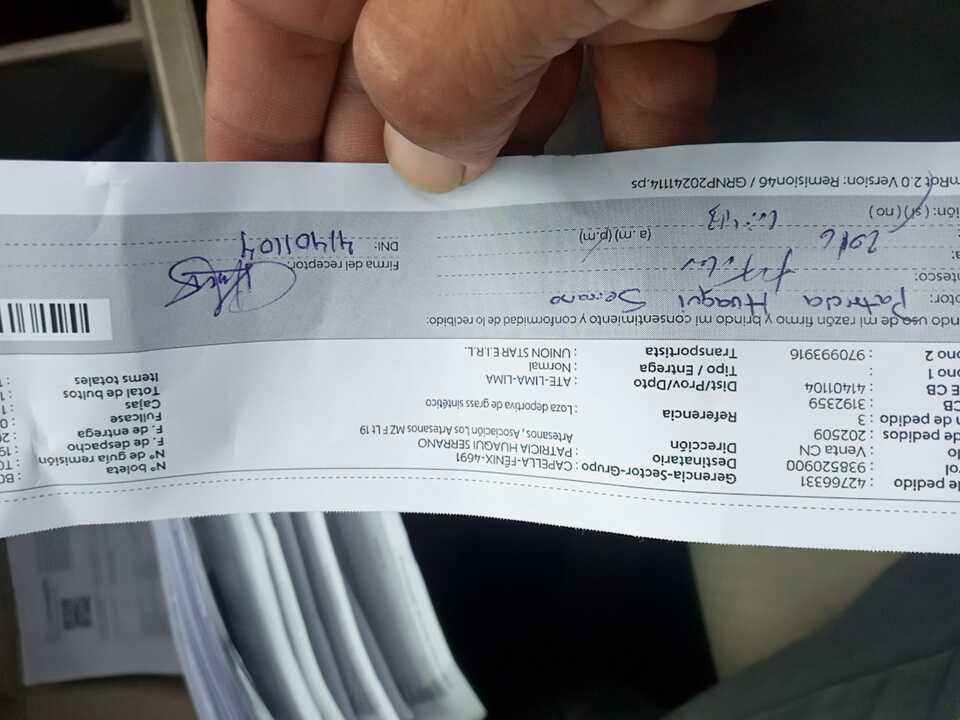 de pedido : 42766331 Gerencia-Sector-Grupo : CAPELLA-FÉNIX-4691 N° boleta : BO
rol : 938520900 Destinatario PATRICIA HUAQUI SERRANO N° de guía remisión : TO
do : Venta CN Dirección Artesanos , Asociación Los Artesanos MZ F Lt 19 F. de despacho : 19
de pedidos : 202509 F. de entrega : 26
n de pedido : 3 Referencia : Loza deportiva de grass sintético Fullcase : 0
CB : 3192359 Cajas : 1
E CB : 41401104 Dist/Prov/Dpto : ATE-LIMA-LIMA Total de bultos : 1
ono 1 : Tipo / Entrega / : Normal Items totales : 1
ono 2 : 970993916 Transportista : UNION STAR E.I.R.L.
ndo uso de mi razón firmo y brindo mi consentimiento y conformidad de lo recibido:
ptor: Patricia Huaqui Serrano
ntesco: Titular Firma del receptor:
a: (a.m) (p.m) DNI: 41401104
ión: ( sí) ( no)
mRot 2.0 Version: Remision46 / GRNP20241114.ps